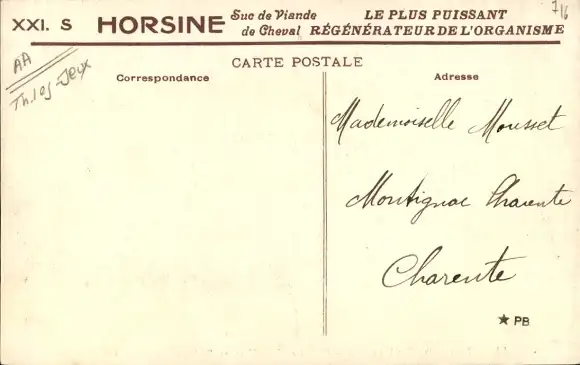 XXI. S HORSINE Suc de Viande de Cheval LE PLUS PUISSANT RÉGÉNÉRATEUR DE L'ORGANISME
7/6
AA
CARTE POSTALE
Correspondance
Adresse
Mademoiselle Mousset
Montignac Charente
Charente
★ PB